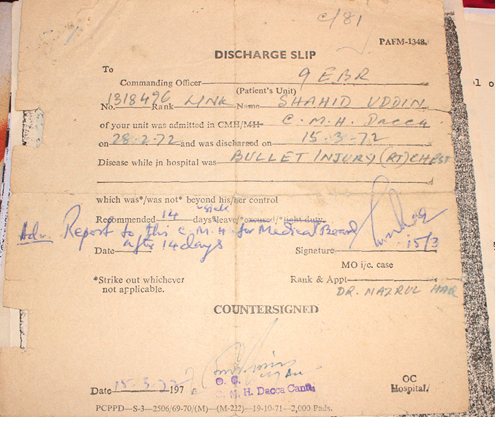 c/81
PAFM-1348.
DISCHARGE SLIP
To
Commanding Officer 9 EBR
(Patient's Unit)
No. 1318496 Rank LINK Name SHAHID UDDIN
of your unit was admitted in CMH/MH C.M.H. Dacca
on 28-2-72 and was discharged on 15.3.72
Disease while in hospital was BULLET INJURY (RT) CHEST
which was*/was not* beyond his/her control
Recommended 14 days sick leave*/excused*/light duty.
Adv. Report to this C.M.H. for Medical Board
after 14 days
Date Signature 15/3
MO i/c. case
*Strike out whichever Rank & Appt
not applicable. DR. NAZRUL HAQ
COUNTERSIGNED
Date 15.3.72 197 O. C. OC
C. M. H. Dacca Cantt. Hospital.
PCPPD—S-3—2506/69-70/(M)—(M-222)—19-10-71—2,000 Pads.